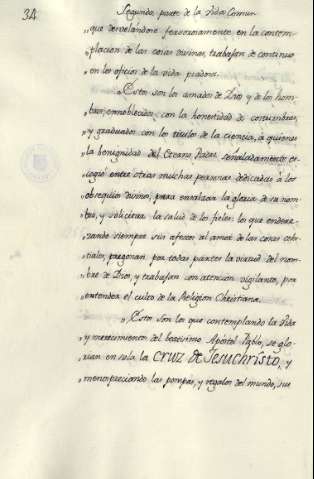 34
Segunda parte de la Vida Comun
„que desvelandose fervorosamente en la contem-
„placion de las cosas divinas, trabajan de continuo
„en los oficios de la vida piadosa.
„Estos son los amados de Dios y de los hom-
„bres, ennoblecidos con la honestidad de costumbres,
„y graduados con los titulos de la ciencia, à quienes
„la benignidad del Eterno Padre señaladamente es-
„cogió entre otras muchas personas dedicadas à los
„obsequios divinos, para ensalzar la gloria de su nom-
„bre, y solicitar la salud de los fieles: los que endere-
„zando siempre sus afectos al amor de las cosas cele-
„stiales, pregonan por todas partes la virtud del nom-
„bre de Dios, y trabajan con atencion vigilante, por
„extender el culto de la Religion Christiana.
„Estos son los que contemplando la Vida
„y merecimientos del beatisimo Apostol Pablo, se glo-
„rian en sola la CRUZ de Jesuchristo, y
„menospreciando las pompas, y regalos del mundo, sus